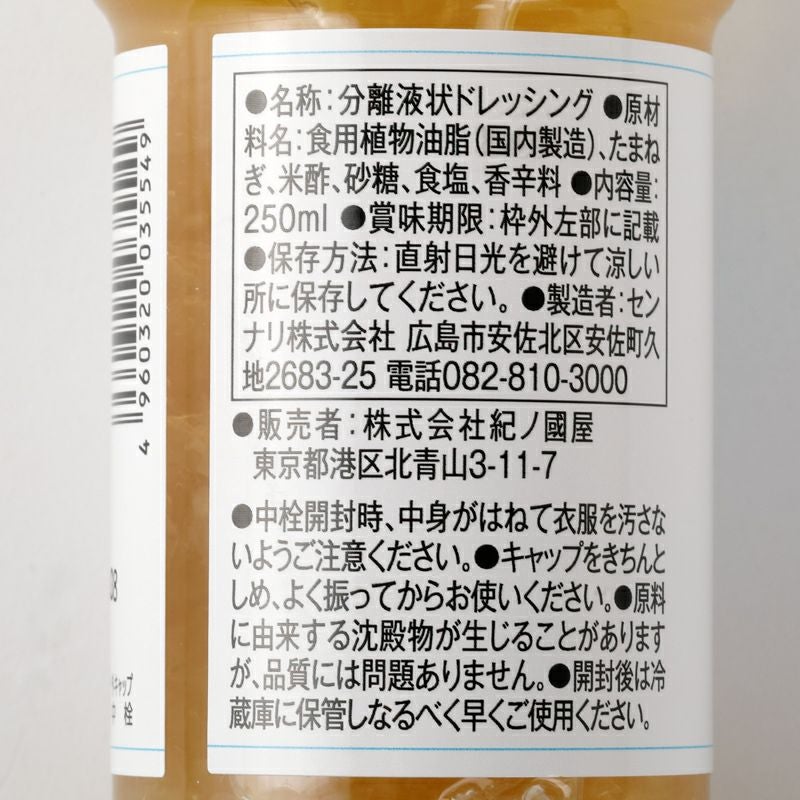 ●名称：分離液状ドレッシング ●原材
料名：食用植物油脂（国内製造）、たまね
ぎ、米酢、砂糖、食塩、香辛料 ●内容量：
250ml ●賞味期限：枠外左部に記載
●保存方法：直射日光を避けて涼しい
所に保存してください。 ●製造者：セン
ナリ株式会社 広島市安佐北区安佐町久
地2683-25 電話082-810-3000
●販売者：株式会社紀ノ國屋
東京都港区北青山3-11-7
●中栓開封時、中身がはねて衣服を汚さな
いようご注意ください。●キャップをきちんと
しめ、よく振ってからお使いください。●原料
に由来する沈殿物が生じることがあります
が、品質には問題ありません。●開封後は冷
蔵庫に保管しなるべく早くご使用ください。
4 960320 035549
キャップ
栓